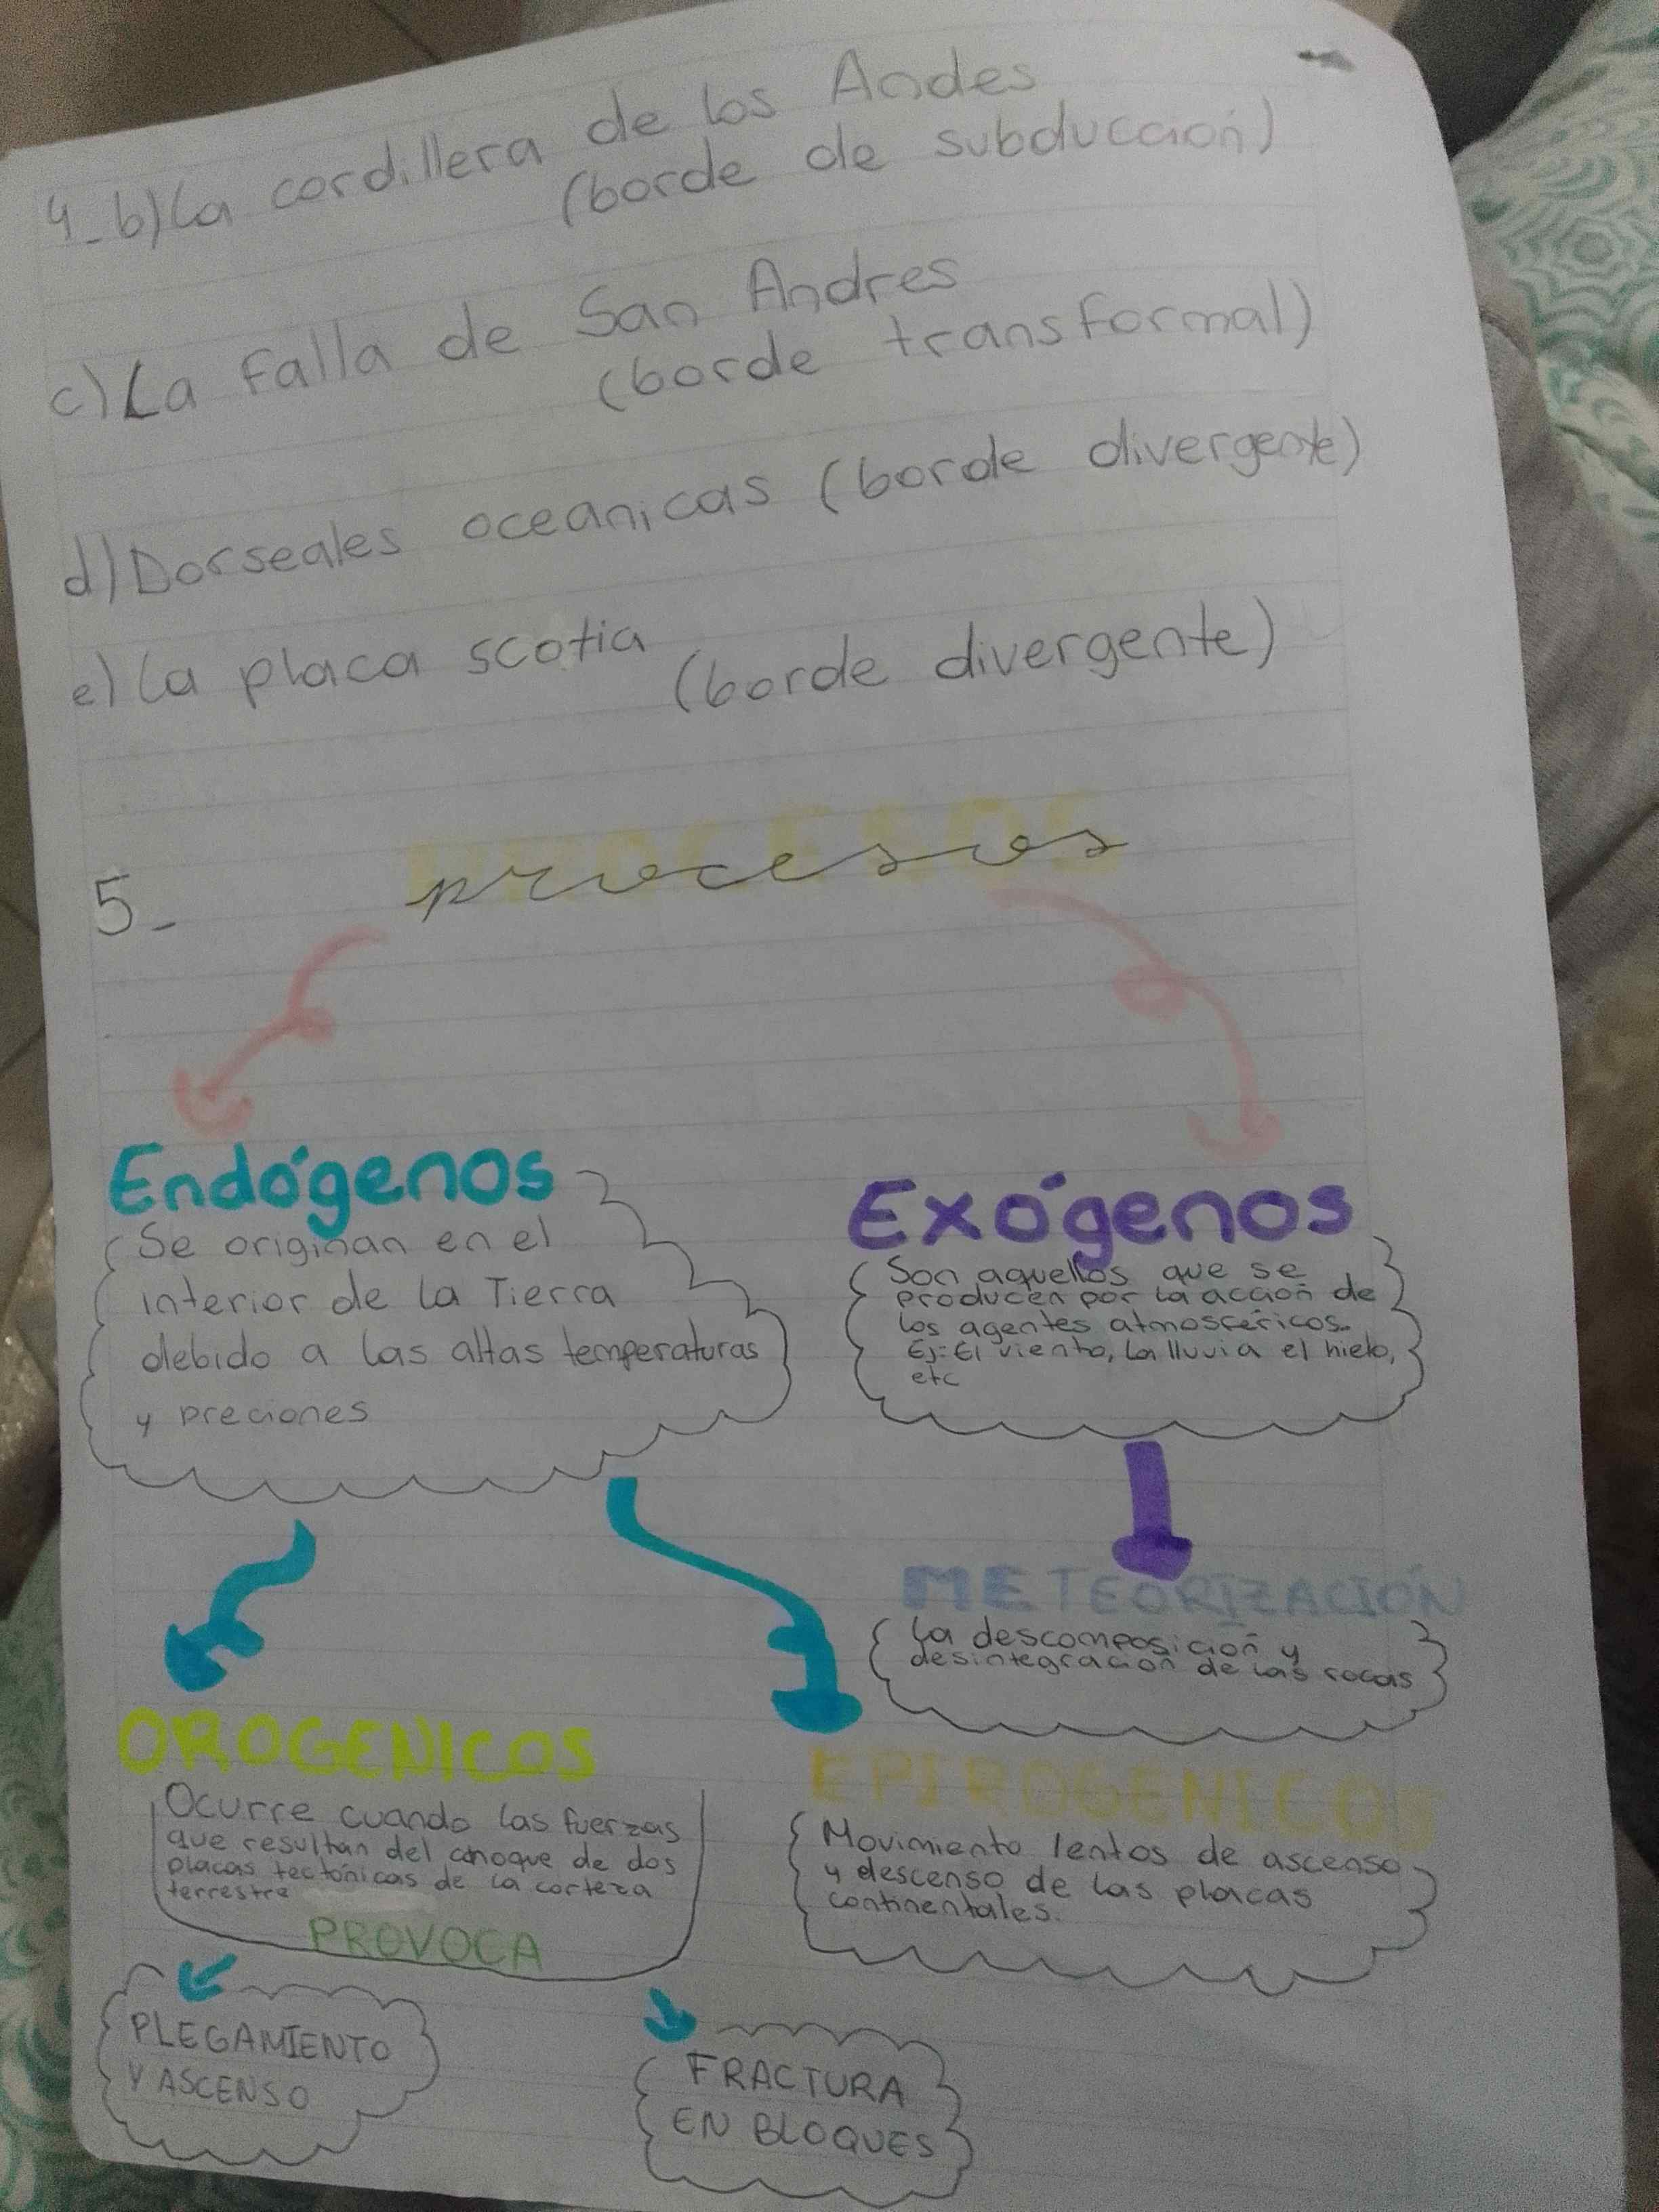 4_b) La cordillera de los Andes
(borde de subduccion)
c) La falla de San Andres
(borde transformal)
d) Dorseales oceanicas (borde divergente)
e) La placa scotia
(borde divergente)
5_ procesos
Endógenos
Se originan en el
interior de la Tierra
debido a las altas temperaturas
y preciones
Exógenos
Son aquellos que se
producen por la acción de
los agentes atmosféricos.
Ej: El viento, la lluvia el hielo,
etc
METEORIZACIÓN
La descomposición y
desintegración de las rocas
OROGENICOS
Ocurre cuando las fuerzas
que resultan del choque de dos
placas tectónicas de la corteza
terrestre
PROVOCA
EPIROGENICOS
Movimiento lentos de ascenso
y descenso de las placas
continentales.
PLEGAMIENTO
Y ASCENSO
FRACTURA
EN BLOQUES